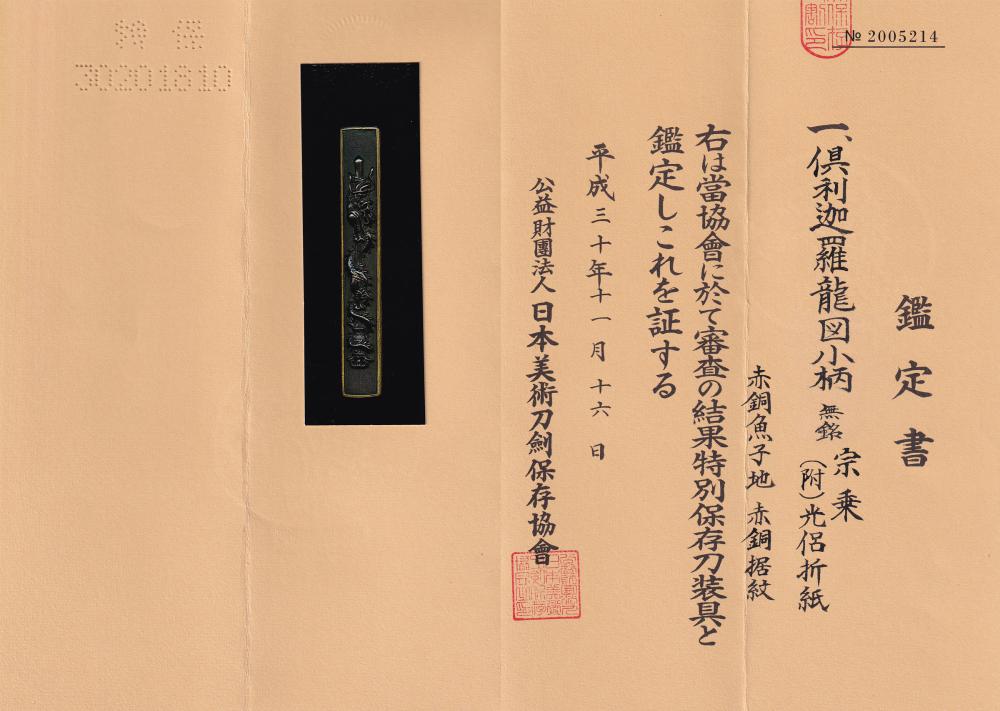 № 2005214
鑑定書
一、倶利迦羅龍図小柄 無銘 宗乗
(附)光侶折紙
赤銅魚子地 赤銅据紋
右は當協會に於て審査の結果特別保存刀装具と
鑑定しこれを証する
平成三十年十一月十六日
公益財團法人 日本美術刀劍保存協會
30201810